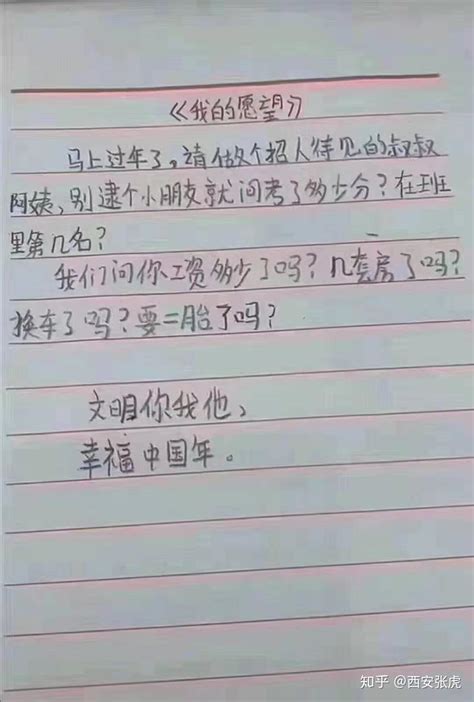 《我的愿望》
马上过年了，请做个招人待见的叔叔
阿姨，别逮个小朋友就问考了多少分？在班
里第几名？
我们问你工资多少了吗？几套房了吗？
换车了吗？要二胎了吗？
文明你我他，
幸福中国年。
知乎 @西安张虎